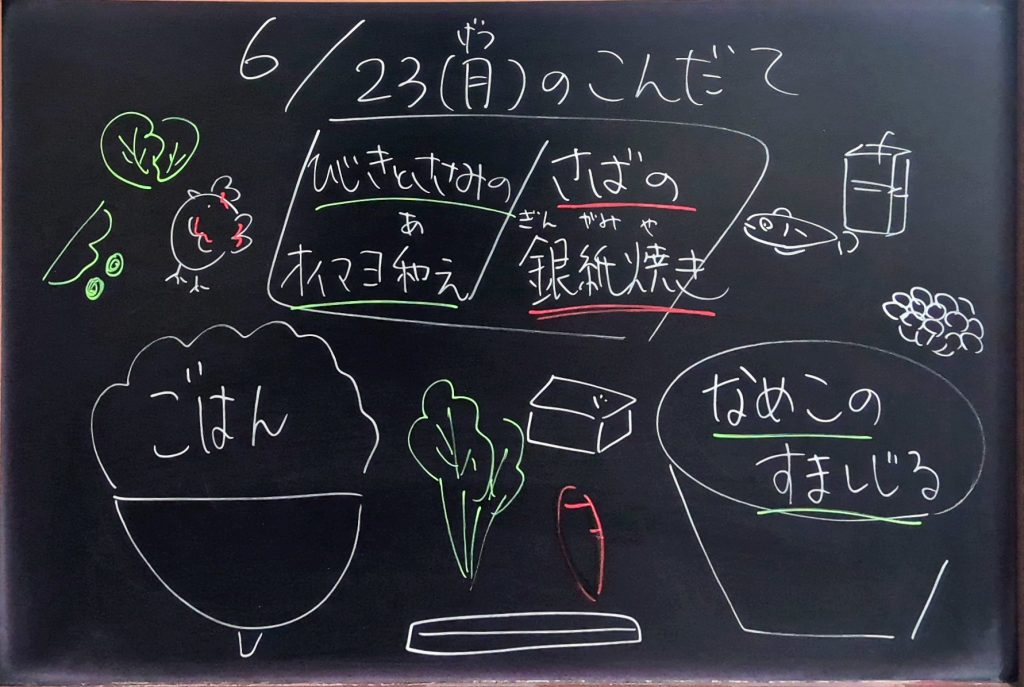 げつ
6/23(月)のこんだて
ひじきとささみの
あ
オイマヨ和え
さばの
ぎん がみ や
銀紙焼き
ごはん
なめこの
すましじる